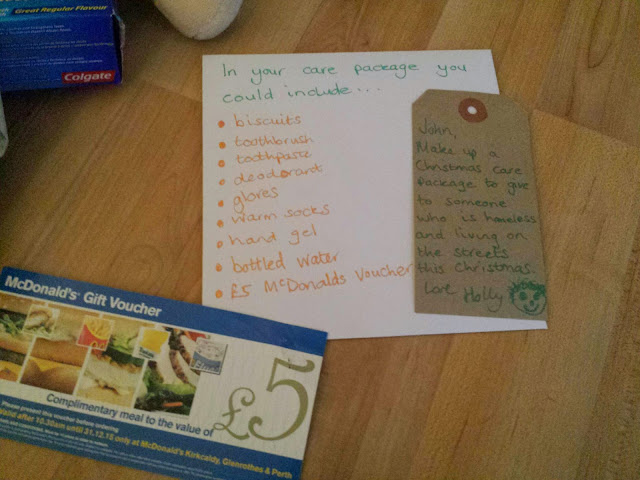 Great Regular Flavour
Colgate
In your care package you
could include...
• biscuits
• toothbrush
• toothpaste
• deodorant
• gloves
• warm socks
• hand gel
• bottled water
• £5 McDonalds Voucher
John,
Make up a
Christmas care
package to give
to someone
who is homeless
and living on
the streets
this Christmas.
Love Holly
McDonald's Gift Voucher
£5
Complimentary meal to the value of
Please present this voucher before ordering
Valid after 10.30am until 31.12.15 only at McDonald's Kirkcaldy, Glenrothes & Perth